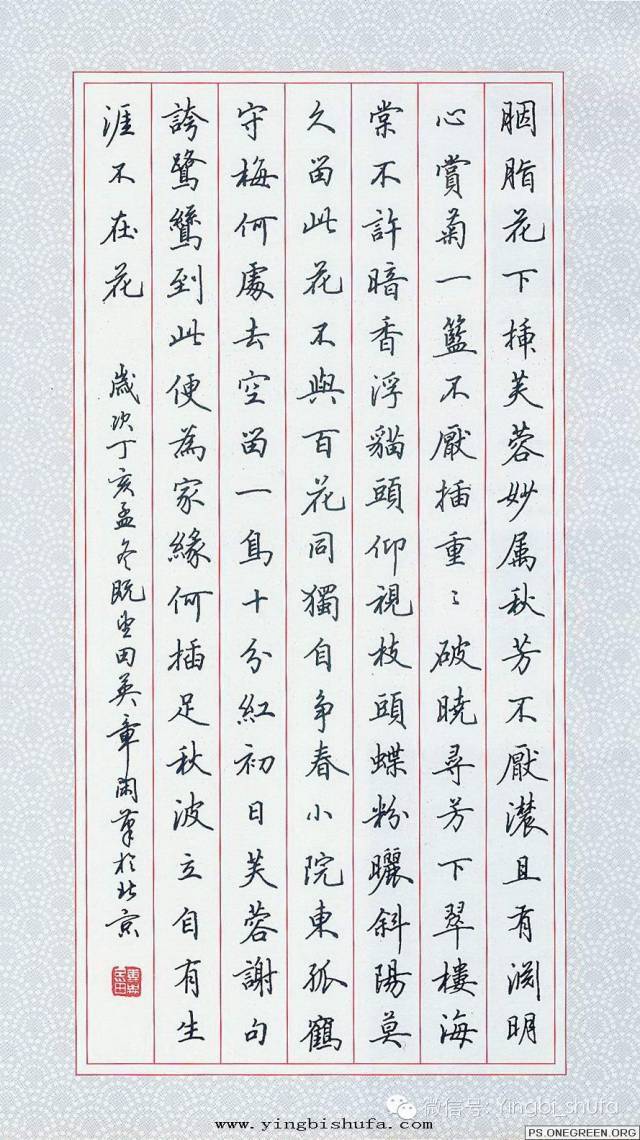 胭脂花下揷芙蓉妙属秋芳不厭濃且有渊明
心賞菊一籃不厭插重〻破曉尋芳下翠樓海
棠不許暗香浮貓頭仰視枝頭蝶粉曬斜陽莫
久留此花不與百花同獨自争春小院東孤鶴
守梅何處去空留一鳥十分紅初日芙蓉謝句
誇鷺鷥到此便為家緣何插足秋波立自有生
涯不在花
歲次丁亥孟冬既望田英章閑筆於北京
微信号: Yingbi_shufa
www.yingbishufa.com
PS.ONEGREEN.ORG